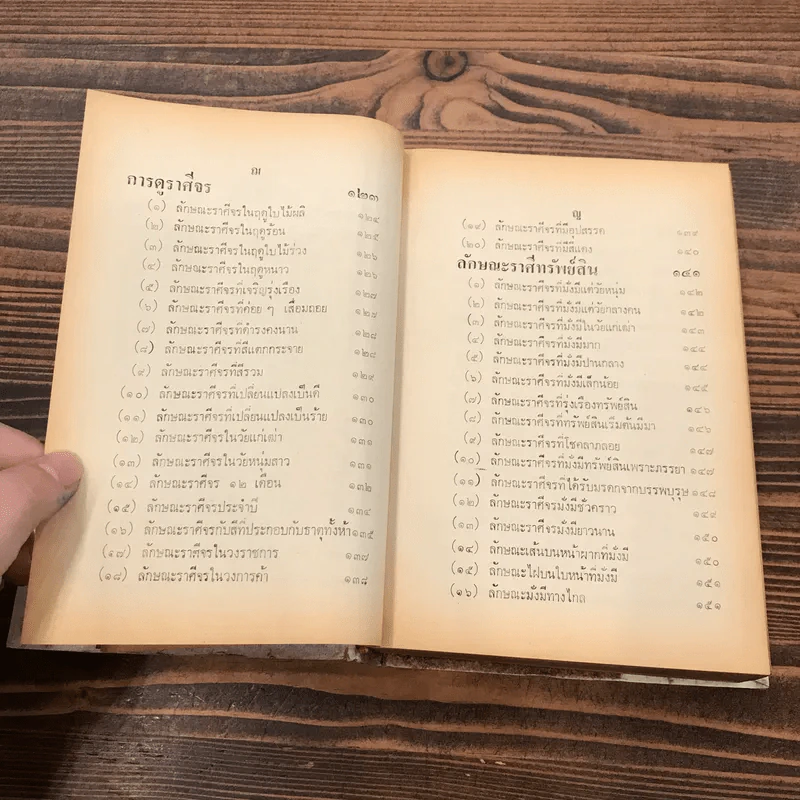 ฌ
การดูราศีจร ๑๒๓
(๑) ลักษณะราศีจรในฤดูใบไม้ผลิ ๑๒๔
(๒) ลักษณะราศีจรในฤดูร้อน ๑๒๕
(๓) ลักษณะราศีจรในฤดูใบไม้ร่วง ๑๒๖
(๔) ลักษณะราศีจรในฤดูหนาว ๑๒๖
(๕) ลักษณะราศีจรที่เจริญรุ่งเรือง ๑๒๗
(๖) ลักษณะราศีจรที่ค่อย ๆ เสื่อมถอย ๑๒๗
(๗) ลักษณะราศีจรที่ดำรงคงนาน ๑๒๘
(๘) ลักษณะราศีจรที่สีแตกกระจาย ๑๒๘
(๙) ลักษณะราศีจรที่สีรวม ๑๒๙
(๑๐) ลักษณะราศีจรที่เปลี่ยนแปลงเป็นดี ๑๓๐
(๑๑) ลักษณะราศีจรที่เปลี่ยนแปลงเป็นร้าย ๑๓๐
(๑๒) ลักษณะราศีจรในวัยแก่เฒ่า ๑๓๑
(๑๓) ลักษณะราศีจรในวัยหนุ่มสาว ๑๓๑
(๑๔) ลักษณะราศีจร ๑๒ เดือน ๑๓๒
(๑๕) ลักษณะราศีจรประจำปี ๑๓๔
(๑๖) ลักษณะราศีจรกับสีที่ประกอบกับธาตุทั้งห้า ๑๓๕
(๑๗) ลักษณะราศีจรในวงราชการ ๑๓๗
(๑๘) ลักษณะราศีจรในวงการค้า ๑๓๘
ญ
(๑๙) ลักษณะราศีจรที่มีอุปสรรค ๑๓๙
(๒๐) ลักษณะราศีจรที่มีสีแดง ๑๔๐
ลักษณะราศีทรัพย์สิน ๑๔๑
(๑) ลักษณะราศีจรที่มั่งมีแค่วัยหนุ่ม ๑๔๒
(๒) ลักษณะราศีจรที่มั่งมีแค่วัยกลางคน ๑๔๒
(๓) ลักษณะราศีจรที่มั่งมีในวัยแก่เฒ่า ๑๔๓
(๔) ลักษณะราศีจรที่มั่งมีมาก ๑๔๔
(๕) ลักษณะราศีจรที่มั่งมีปานกลาง ๑๔๔
(๖) ลักษณะราศีจรที่มั่งมีเล็กน้อย ๑๔๕
(๗) ลักษณะราศีจรที่รุ่งเรืองทรัพย์สิน ๑๔๖
(๘) ลักษณะราศีจรที่ทรัพย์สินเริ่มต้นมีมา ๑๔๖
(๙) ลักษณะราศีจรที่โชคลาภลอย ๑๔๗
(๑๐) ลักษณะราศีจรที่มั่งมีทรัพย์สินเพราะภรรยา ๑๔๗
(๑๑) ลักษณะราศีจรที่ได้รับมรดกจากบรรพบุรุษ ๑๔๘
(๑๒) ลักษณะราศีจรมั่งมีชั่วคราว ๑๔๙
(๑๓) ลักษณะราศีจรมั่งมียาวนาน ๑๕๐
(๑๔) ลักษณะเส้นบนหน้าผากที่มั่งมี ๑๕๐
(๑๕) ลักษณะไฝบนใบหน้าที่มั่งมี ๑๕๑
(๑๖) ลักษณะมั่งมีทางไกล ๑๕๑